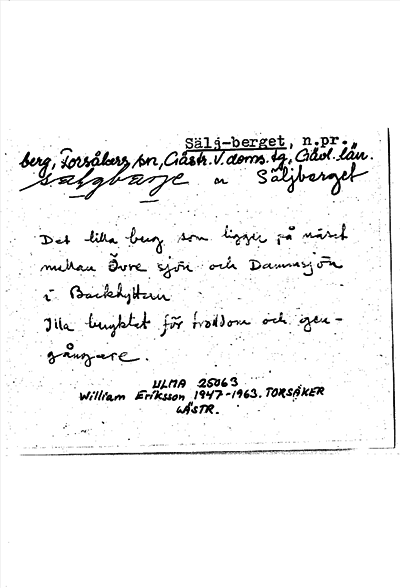 Sälj-berget, n.pr.
berg, Torsåkers sn, Gästr. V. doms. tg, Gävl. län.
sälgbärje n Säljberget
Det lilla berg som ligger på näset
mellan Övre sjön och Dammsjön
i Backhyttan
Illa beryktat för trolldom och gen-
gångare.
ULMA 25063
William Eriksson 1947-1963. TORSÅKER
GÄSTR.